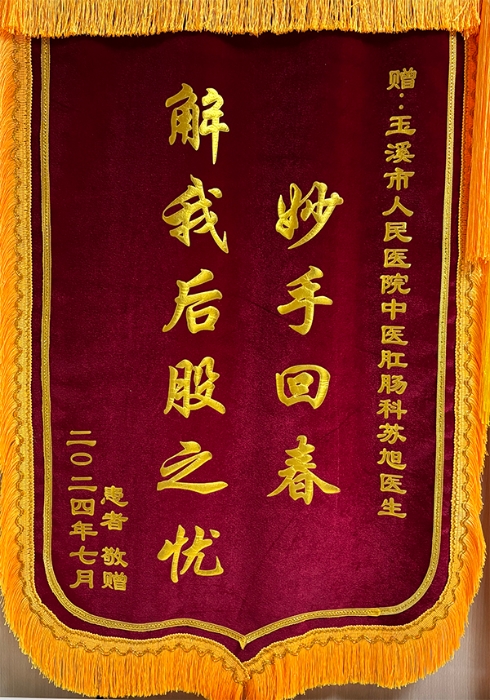 赠:玉溪市人民医院中医肛肠科苏旭医生
妙手回春
解我后股之忧
患者 敬赠
二〇二四年七月